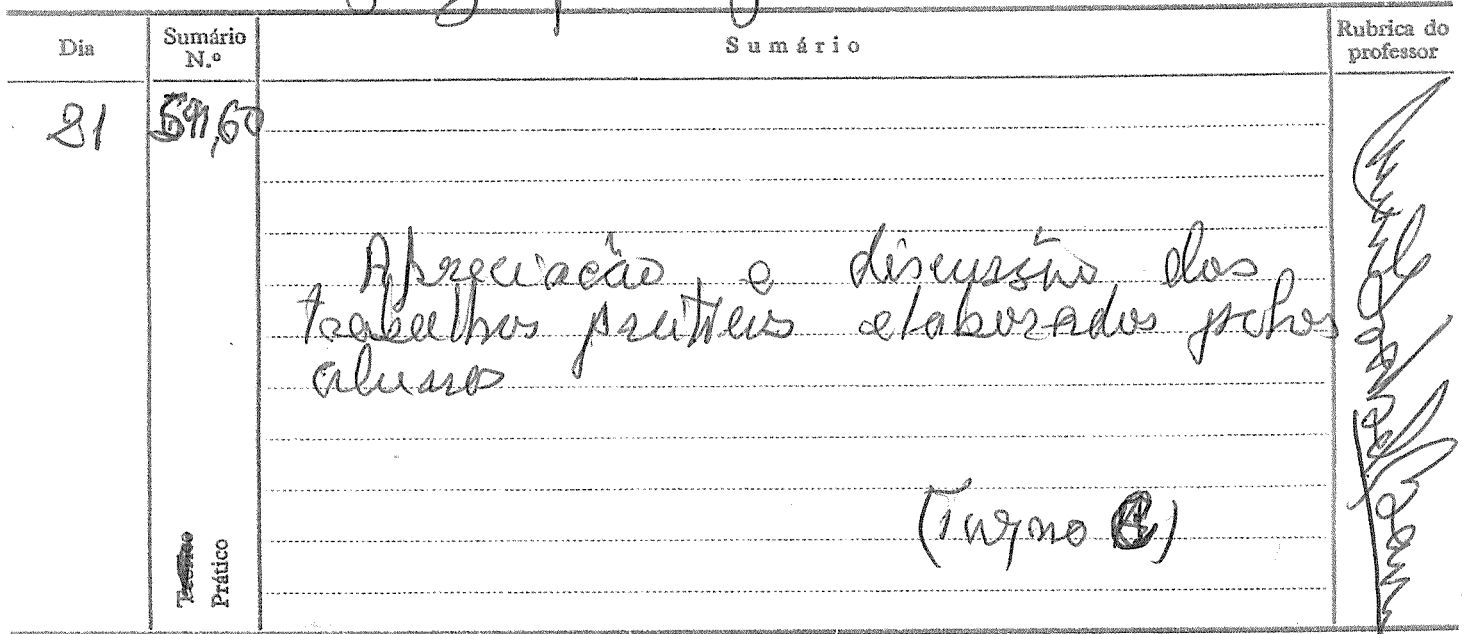 Dia
Sumário N.º
Sumário
Rubrica do professor
21
59,60
Apreciação e discussão dos
trabalhos práticos elaborados pelos
alunos
(Turno)
Teórico
Prático